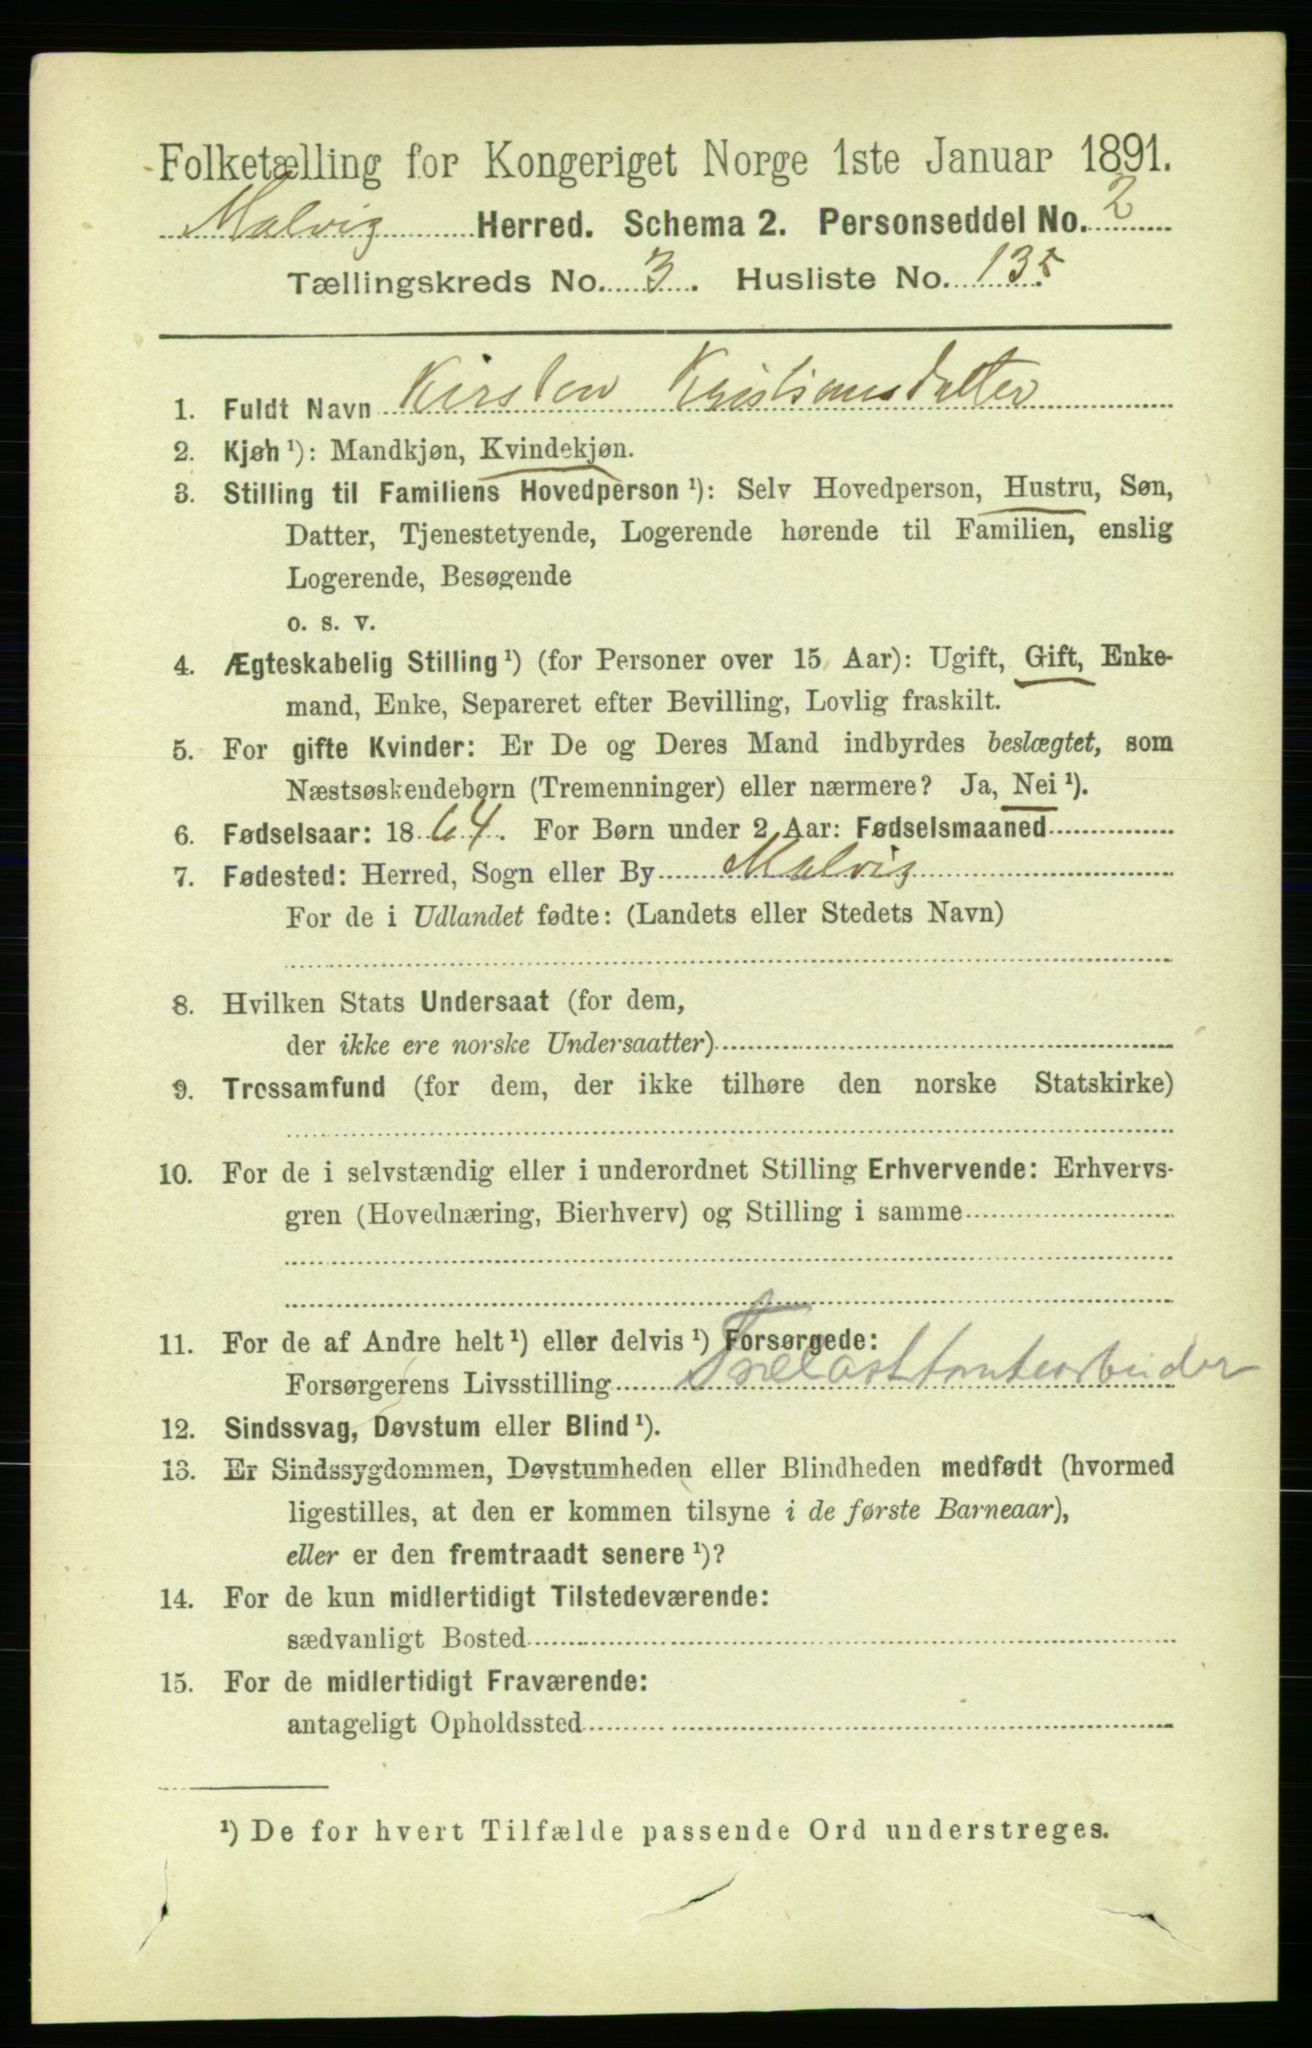 Folketælling for Kongeriget Norge 1ste Januar 1891.
Malvig Herred. Schema 2. Personseddel No. 2
Tællingskreds No. 3. Husliste No. 135
1. Fuldt Navn Kirsten Kristiansdatter
2. Kjøn ¹): Mandkjøn, Kvindekjøn.
3. Stilling til Familiens Hovedperson ¹): Selv Hovedperson, Hustru, Søn,
Datter, Tjenestetyende, Logerende hørende til Familien, enslig
Logerende, Besøgende
o. s. v.
4. Ægteskabelig Stilling ¹) (for Personer over 15 Aar): Ugift, Gift, Enke-
mand, Enke, Separeret efter Bevilling, Lovlig fraskilt.
5. For gifte Kvinder: Er De og Deres Mand indbyrdes beslægtet, som
Næstsøskendebørn (Tremenninger) eller nærmere? Ja, Nei ¹).
6. Fødselsaar: 1864. For Børn under 2 Aar: Fødselsmaaned
7. Fødested: Herred, Sogn eller By Malvig
For de i Udlandet fødte: (Landets eller Stedets Navn)
8. Hvilken Stats Undersaat (for dem,
der ikke ere norske Undersaatter)
9. Trossamfund (for dem, der ikke tilhøre den norske Statskirke)
10. For de i selvstændig eller i underordnet Stilling Erhvervende: Erhvervs-
gren (Hovednæring, Bierhverv) og Stilling i samme
11. For de af Andre helt ¹) eller delvis ¹) Forsørgede:
Forsørgerens Livsstilling Trælasttomtearbeider
12. Sindssvag, Døvstum eller Blind ¹).
13. Er Sindssygdommen, Døvstumheden eller Blindheden medfødt (hvormed
ligestilles, at den er kommen tilsyne i de første Barneaar),
eller er den fremtraadt senere ¹)?
14. For de kun midlertidigt Tilstedeværende:
sædvanligt Bosted
15. For de midlertidigt Fraværende:
antageligt Opholdssted
¹) De for hvert Tilfælde passende Ord understreges.